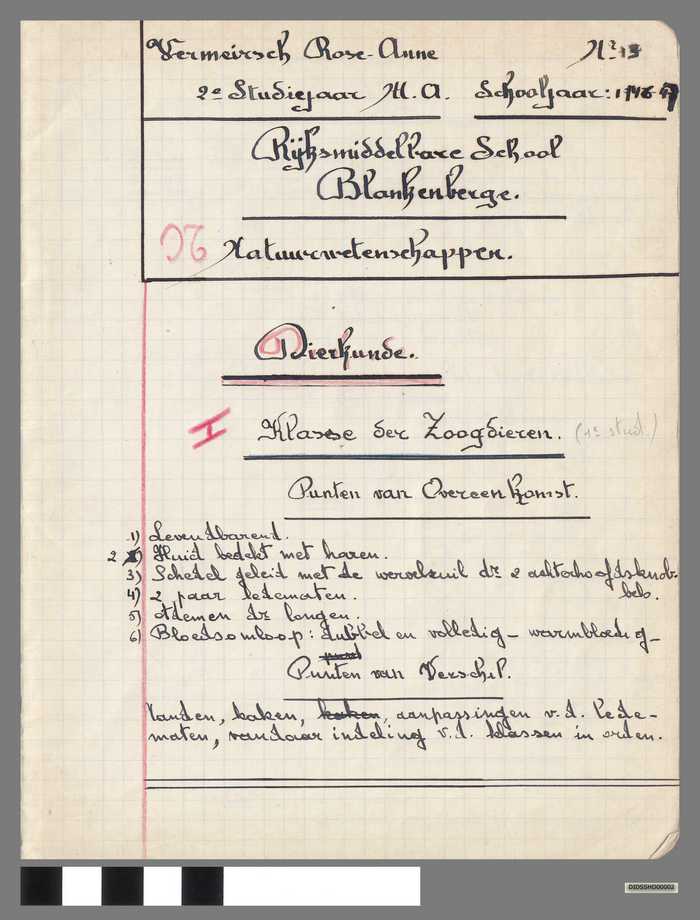 Vermeirsch Rose-Anne Nr 13
2e Studiejaar M.A. Schooljaar: 1946-47
Rijksmiddelbare School
Blankenberge.
Natuurwetenschappen.
Dierkunde.
I Klasse der Zoogdieren. (1e stud.)
Punten van Overeenkomst.
1) Levendbarend.
2) Huid bedekt met haren.
3) Schedel geleid met de wervelzuil dr 2 achterhoofdsknob-
bels.
4) 2 paar ledematen.
5) Ademen dr longen.
6) Bloedsomloop: dubbel en volledig - warmbloedig -
Punten van Verschil.
Tanden, kaken, kaken, aanpassingen v.d. lede-
maten, vandaar indeling v.d. klassen in orden.
DIDSSHO00002